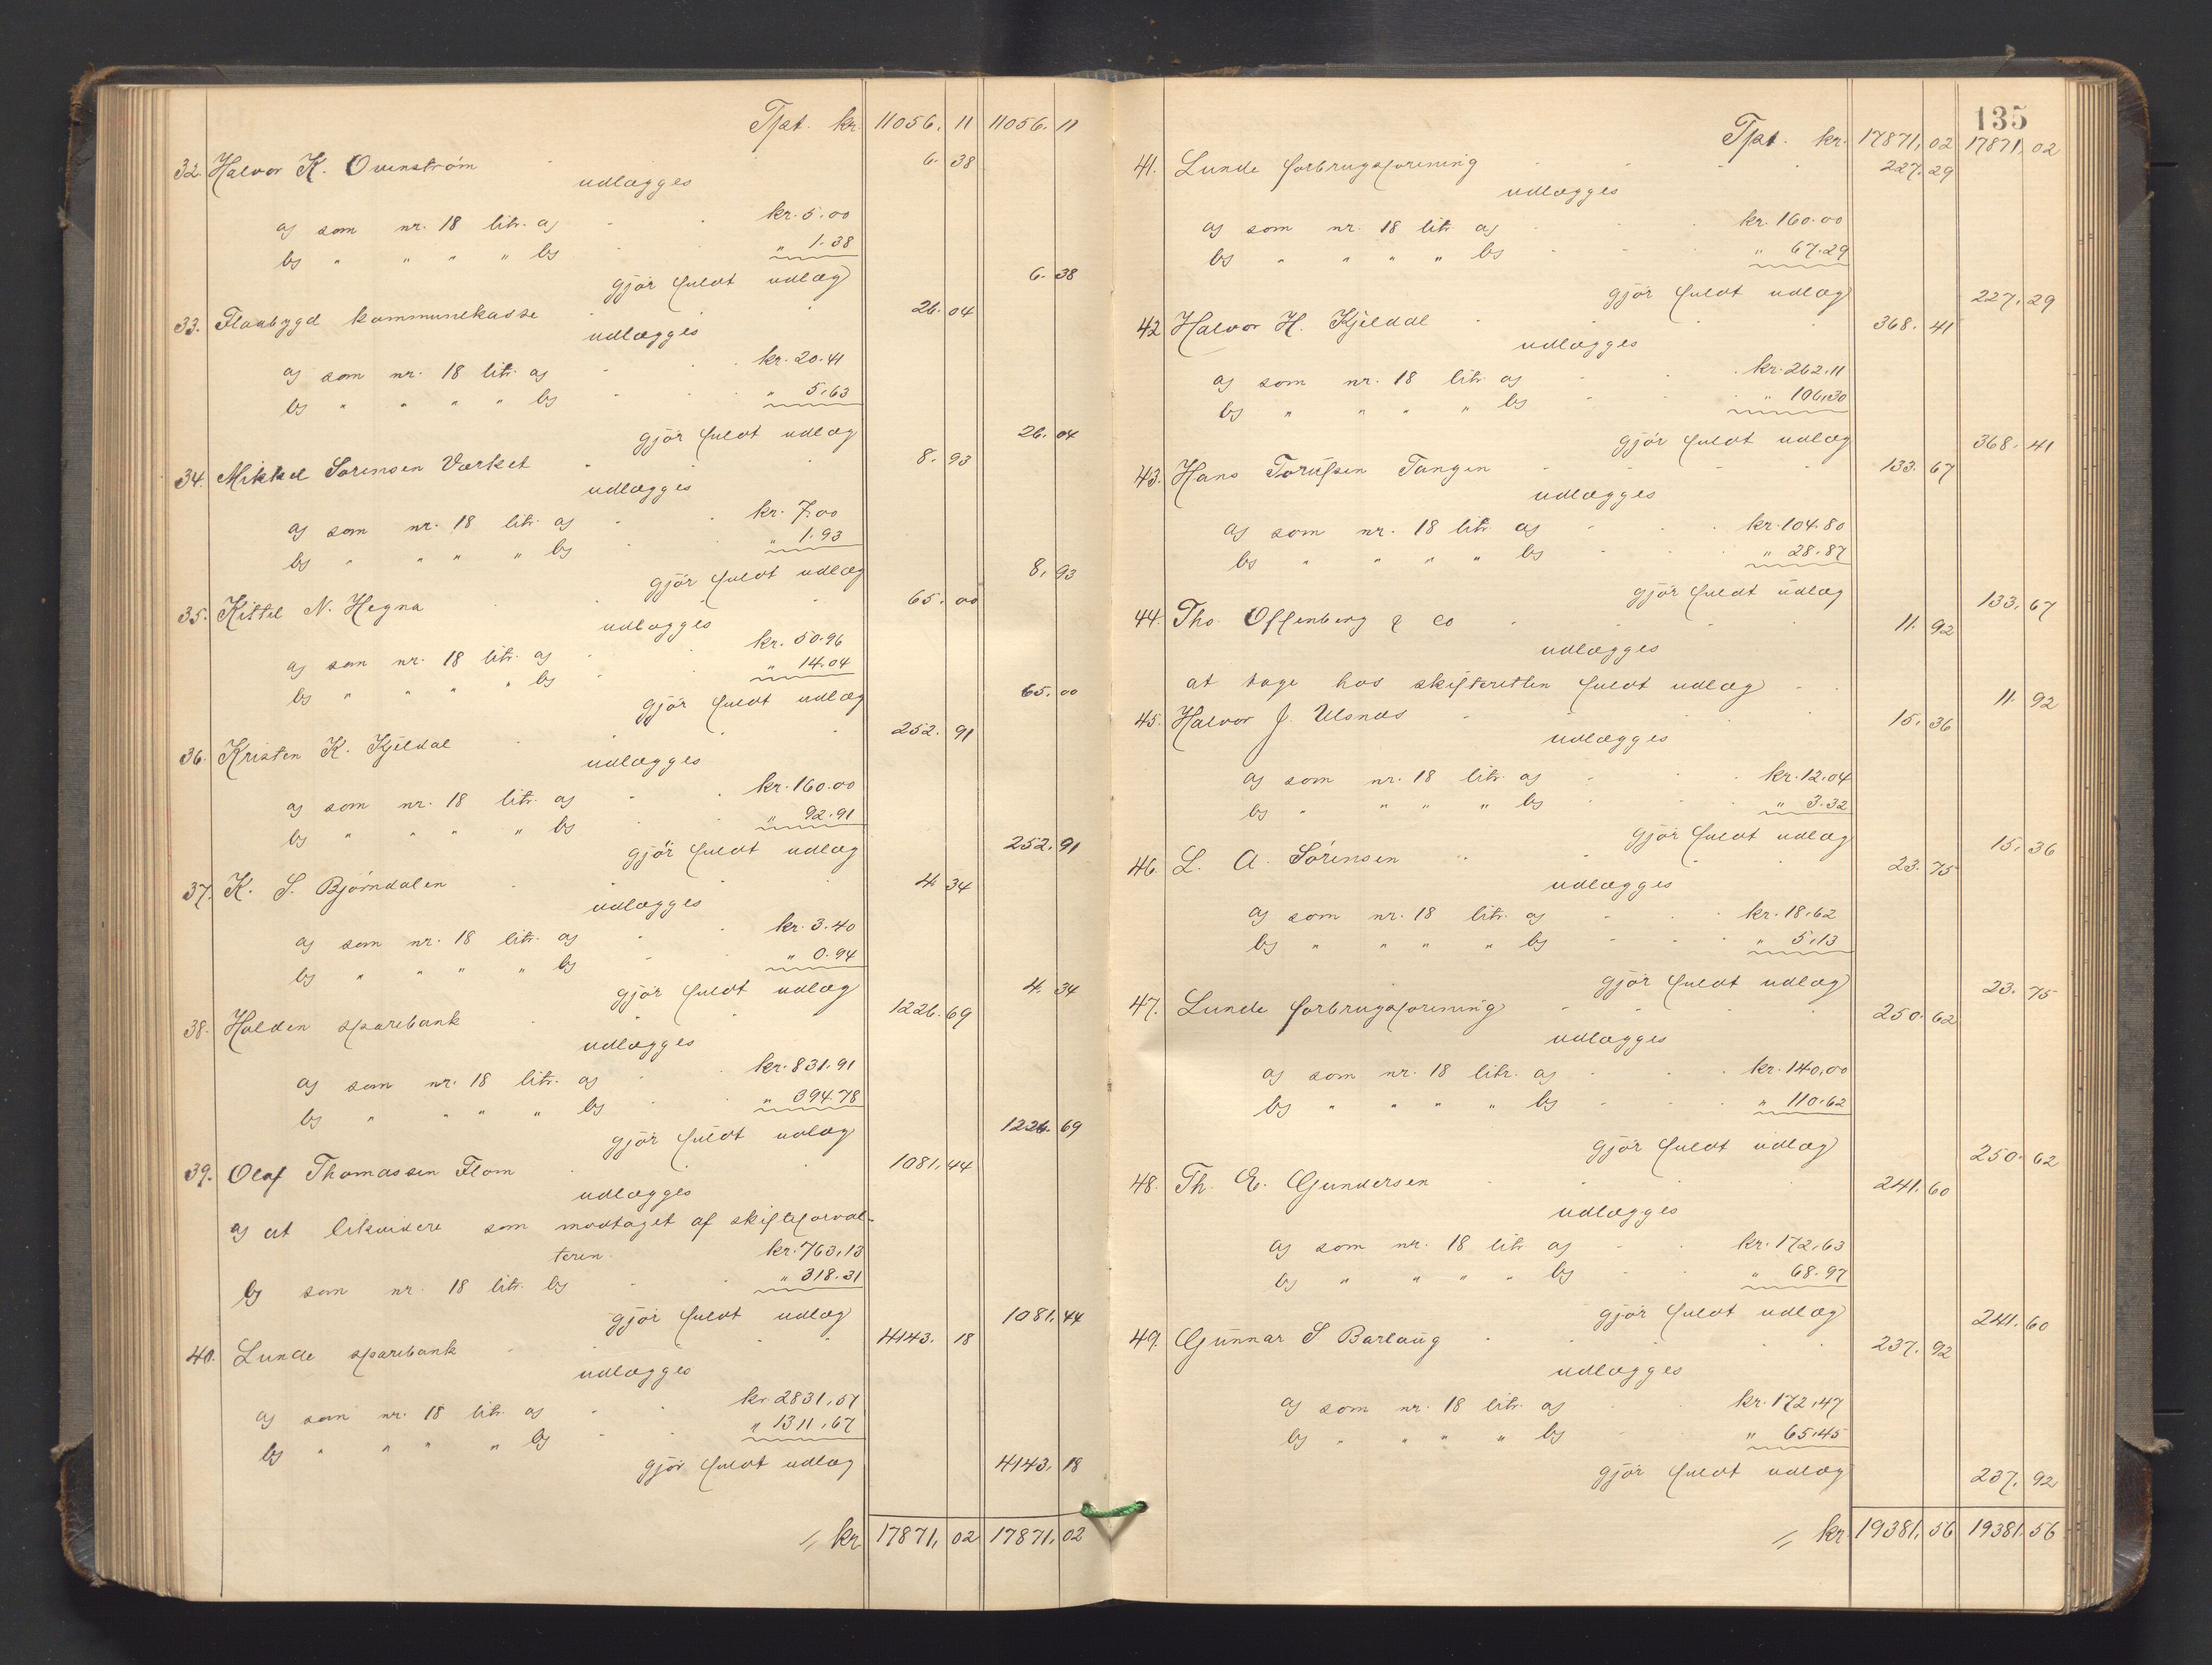 Tpt. kr. 11056. 11 11056. 11
32. Halvor K. Ovenström 6. 38
udlægges
a) som nr. 18 litr. a) kr. 5.00
b) " " " " b) " 1.38
gjör fuldt udlæg 6. 38
33. Flaabygd kommunekasse 26. 04
udlægges
a) som nr. 18 litr. a) kr. 20.41
b) " " " " b) " 5.63
gjör fuldt udlæg 26. 04
34. Mikkel Sørensen Værket 8. 93
udlægges
a) som nr. 18 litr. a) kr. 7.00
b) " " " " b) " 1.93
gjör fuldt udlæg 8. 93
35. Kittel N. Hegna 65. 00
udlægges
a) som nr. 18 litr. a) kr. 50.96
b) " " " " b) " 14.04
gjör fuldt udlæg 65. 00
36. Kristen K. Kjeldal 252. 91
udlægges
a) som nr. 18 litr. a) kr. 160.00
b) " " " " b) " 92.91
gjör fuldt udlæg 252. 91
37. K. S. Bjørndalen 4. 34
udlægges
a) som nr. 18 litr. a) kr. 3.40
b) " " " " b) " 0.94
gjör fuldt udlæg 4. 34
38. Holden sparebank 1226. 69
udlægges
a) som nr. 18 litr. a) kr. 831.91
b) " " " " b) " 394.78
gjör fuldt udlæg 1226. 69
39. Olaf Thomassen Flom 1081. 44
udlægges
a) at likvidere som modtaget af skifteforval-
teren. kr. 763.13
b) som nr. 18 litr. b) " 318.31
gjör fuldt udlæg 1081. 44
40. Lunde sparebank 4143. 18
udlægges
a) som nr. 18 litr. a) kr. 2831,51
b) " " " " b) " 1311,67
gjör fuldt udlæg 4143. 18
= kr. 17871, 02 17871, 02
135
Tpt. kr. 17871, 02 17871, 02
41. Lunde forbrugsforening 227. 29
udlægges
a) som nr. 18 litr a) kr. 160.00
b) " " " " b) " 67.29
gjör fuldt udlæg 227. 29
42 Halvor H. Kjeldal 368. 41
udlægges
a) som nr. 18 litr a) kr. 262.11
b) " " " " b) " 106.30
gjör fuldt udlæg 368. 41
43. Hans Torufsen Tangen 133. 67
udlægges
a) som nr. 18 litr a) kr. 104.80
b) " " " " b) " 28.87
gjör fuldt udlæg 133. 67
44. Tho. Offenberg & Co 11. 92
udlægges
at tage hos skifteretten fuldt udlæg 11. 92
45. Halvor J. Ulsnæs 15. 36
udlægges
a) som nr. 18 litr. a) kr. 12,04
b) " " " " b) " 3.32
gjör fuldt udlæg 15. 36
46. L. A. Sörensen 23. 75
udlægges
a) som nr. 18 litr. a) kr. 18.62
b) " " " " b) " 5.13
gjör fuldt udlæg 23. 75
47. Lunde forbrugsforening 250. 62
udlægges
a) som nr. 18 litr. a) kr. 140,00
b) " " " " b) " 110.62
gjör fuldt udlæg 250. 62
48. Th. E. Gundersen 241. 60
udlægges
a) som nr. 18 litr a) kr. 172,63
b) " " " " b) " 68.97
gjör fuldt udlæg 241. 60
49. Gunnar S Barlaug 237. 92
udlægges
a) som nr. 18 litr. a) kr. 172,47
b) " " " " b) " 65.45
gjör fuldt udlæg 237. 92
= kr. 19381, 56 19381. 56